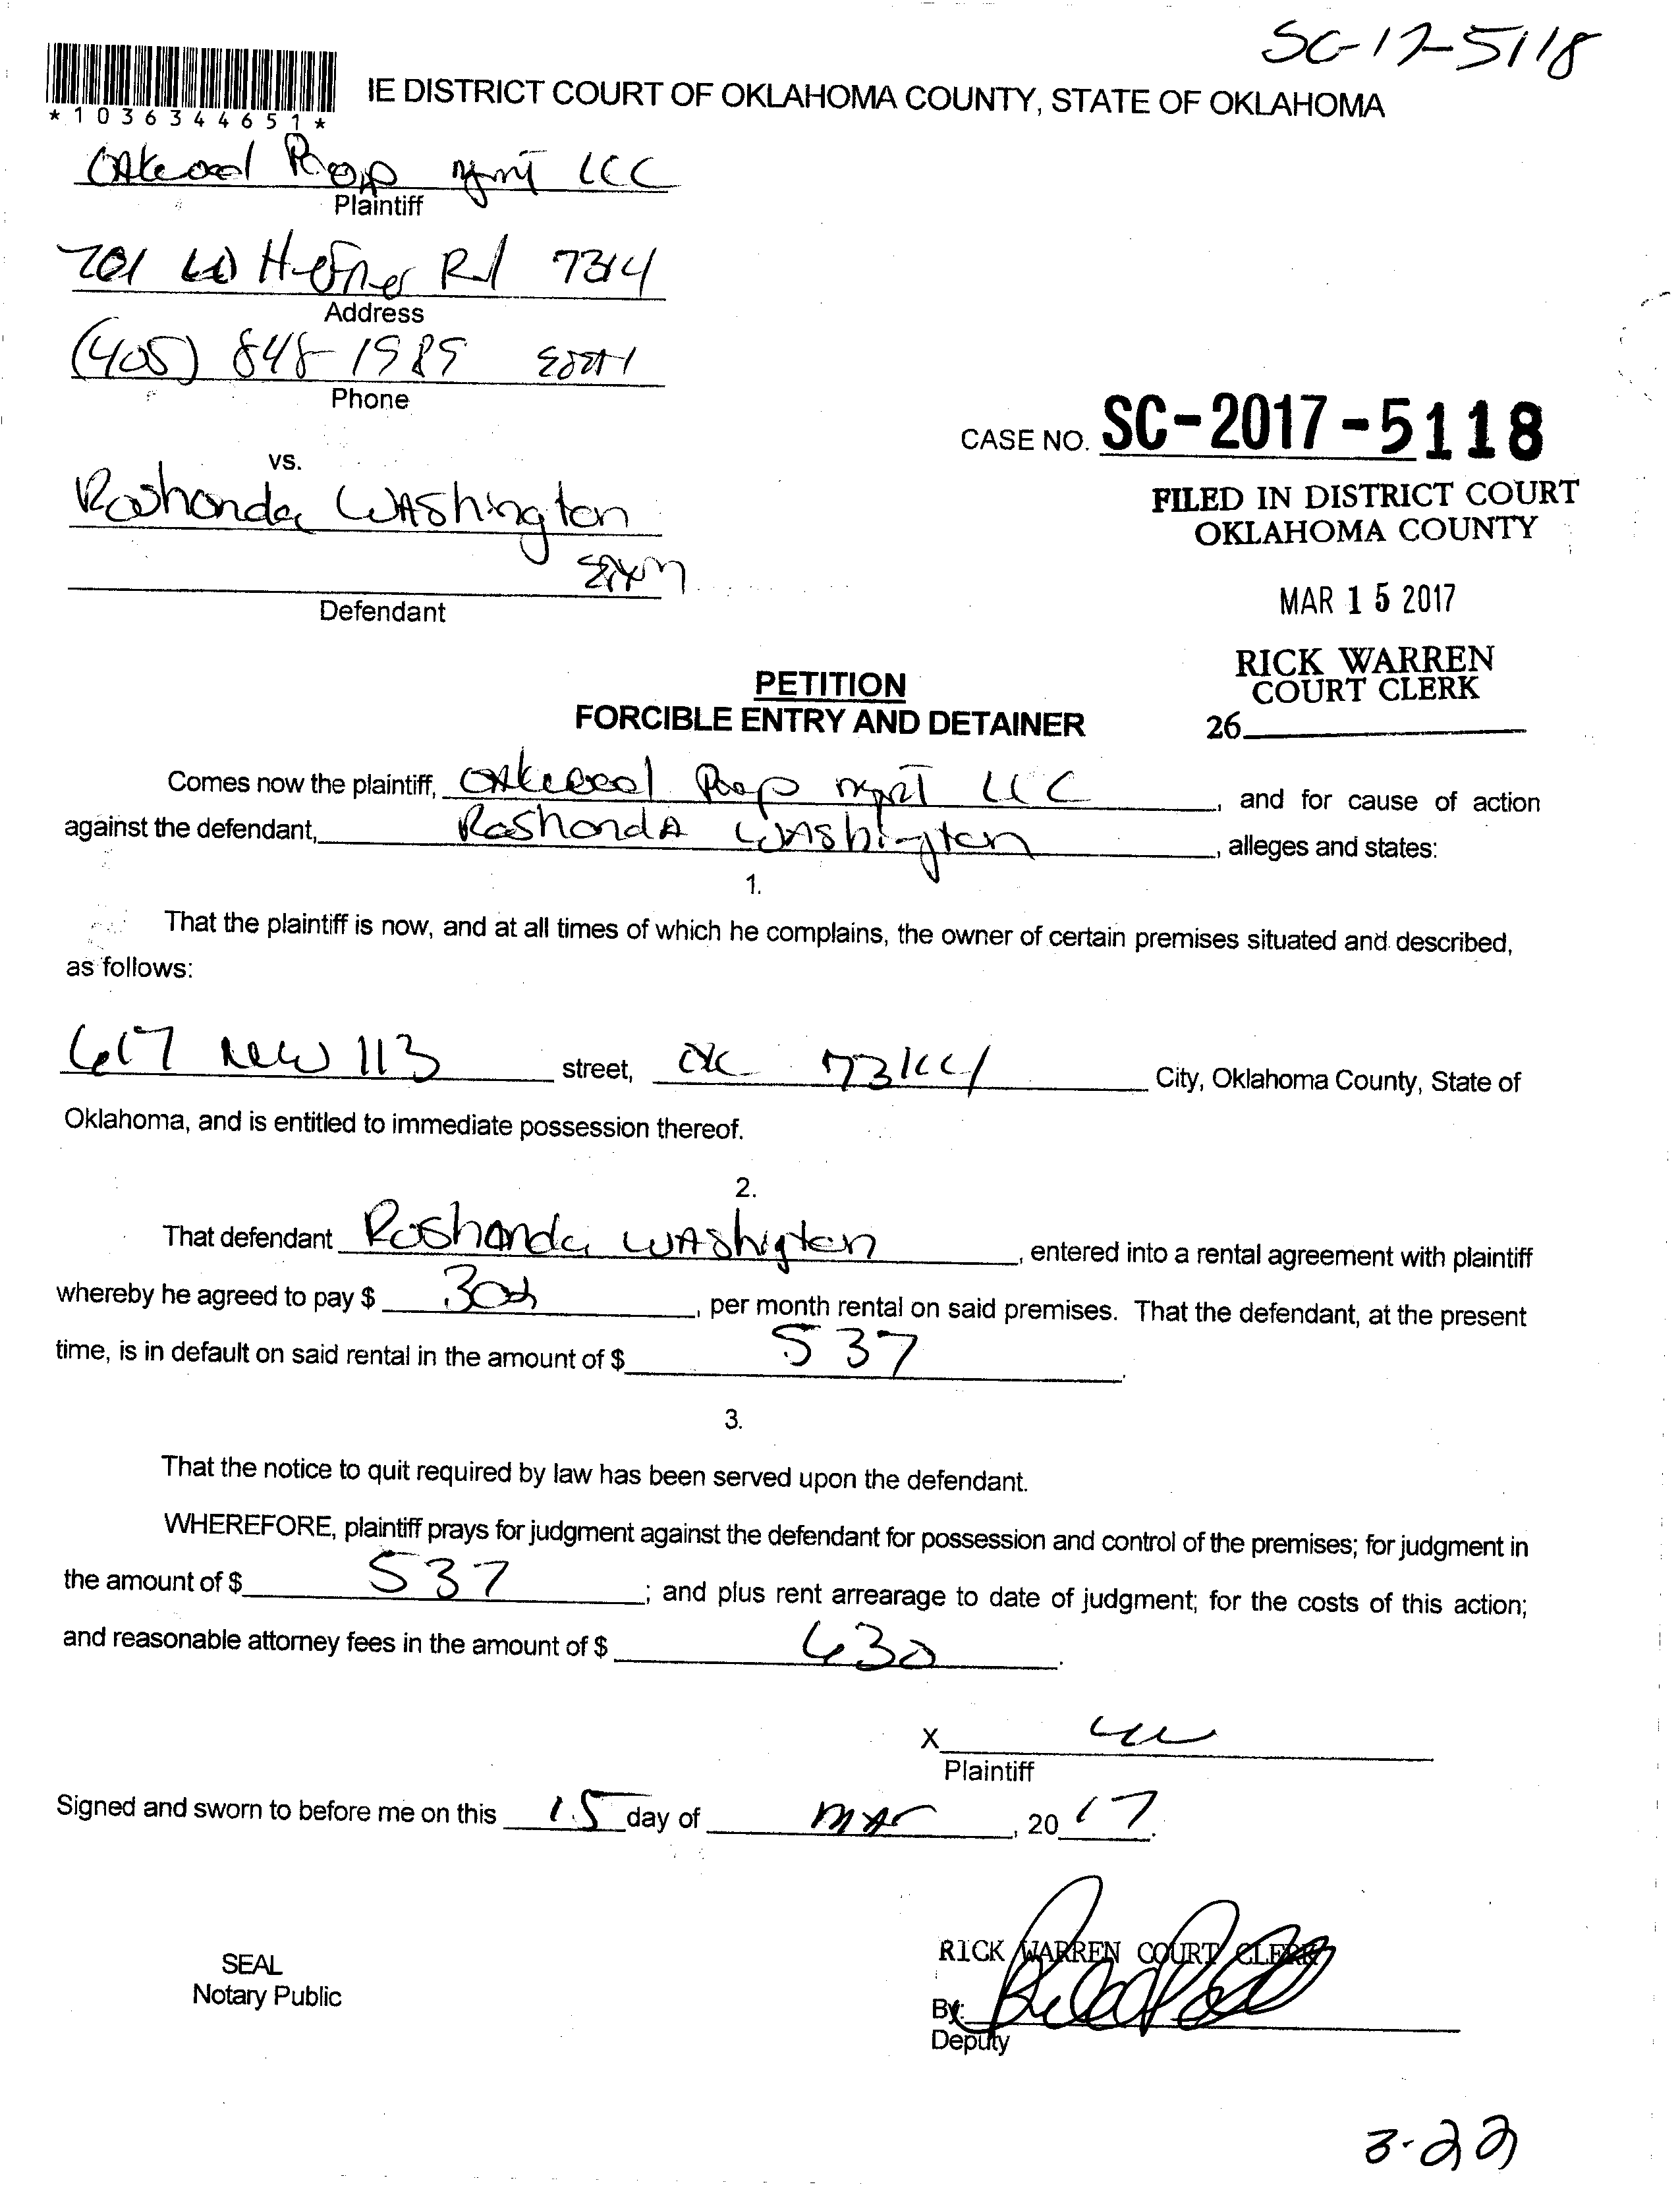 SC-17-5118
*1036344651*
IE DISTRICT COURT OF OKLAHOMA COUNTY, STATE OF OKLAHOMA
Oakwood Prop Mgmt LLC
Plaintiff
701 W Hefner Rd 7314
Address
(405) 848-1989
Phone
CASE NO. SC-2017-5118
vs.
FILED IN DISTRICT COURT
OKLAHOMA COUNTY
Roshonda Washington
MAR 15 2017
Defendant
RICK WARREN
COURT CLERK
26
PETITION
FORCIBLE ENTRY AND DETAINER
Comes now the plaintiff, Oakwood Prop mgmt LLC, and for cause of action
against the defendant, Roshonda Washington, alleges and states:
1.
That the plaintiff is now, and at all times of which he complains, the owner of certain premises situated and described,
as follows:
617 NW 113 street, OK 73114 City, Oklahoma County, State of
Oklahoma, and is entitled to immediate possession thereof.
2.
That defendant Roshonda Washigton, entered into a rental agreement with plaintiff
whereby he agreed to pay $, per month rental on said premises. That the defendant, at the present
time, is in default on said rental in the amount of $ 537.
3.
That the notice to quit required by law has been served upon the defendant.
WHEREFORE, plaintiff prays for judgment against the defendant for possession and control of the premises; for judgment in
the amount of $ 537; and plus rent arrearage to date of judgment; for the costs of this action;
and reasonable attorney fees in the amount of $ 630.
X
Plaintiff
Signed and sworn to before me on this 15 day of Mar, 20 17.
RICK WARREN COURT CLERK
SEAL
Notary Public
By:
Deputy
3-22